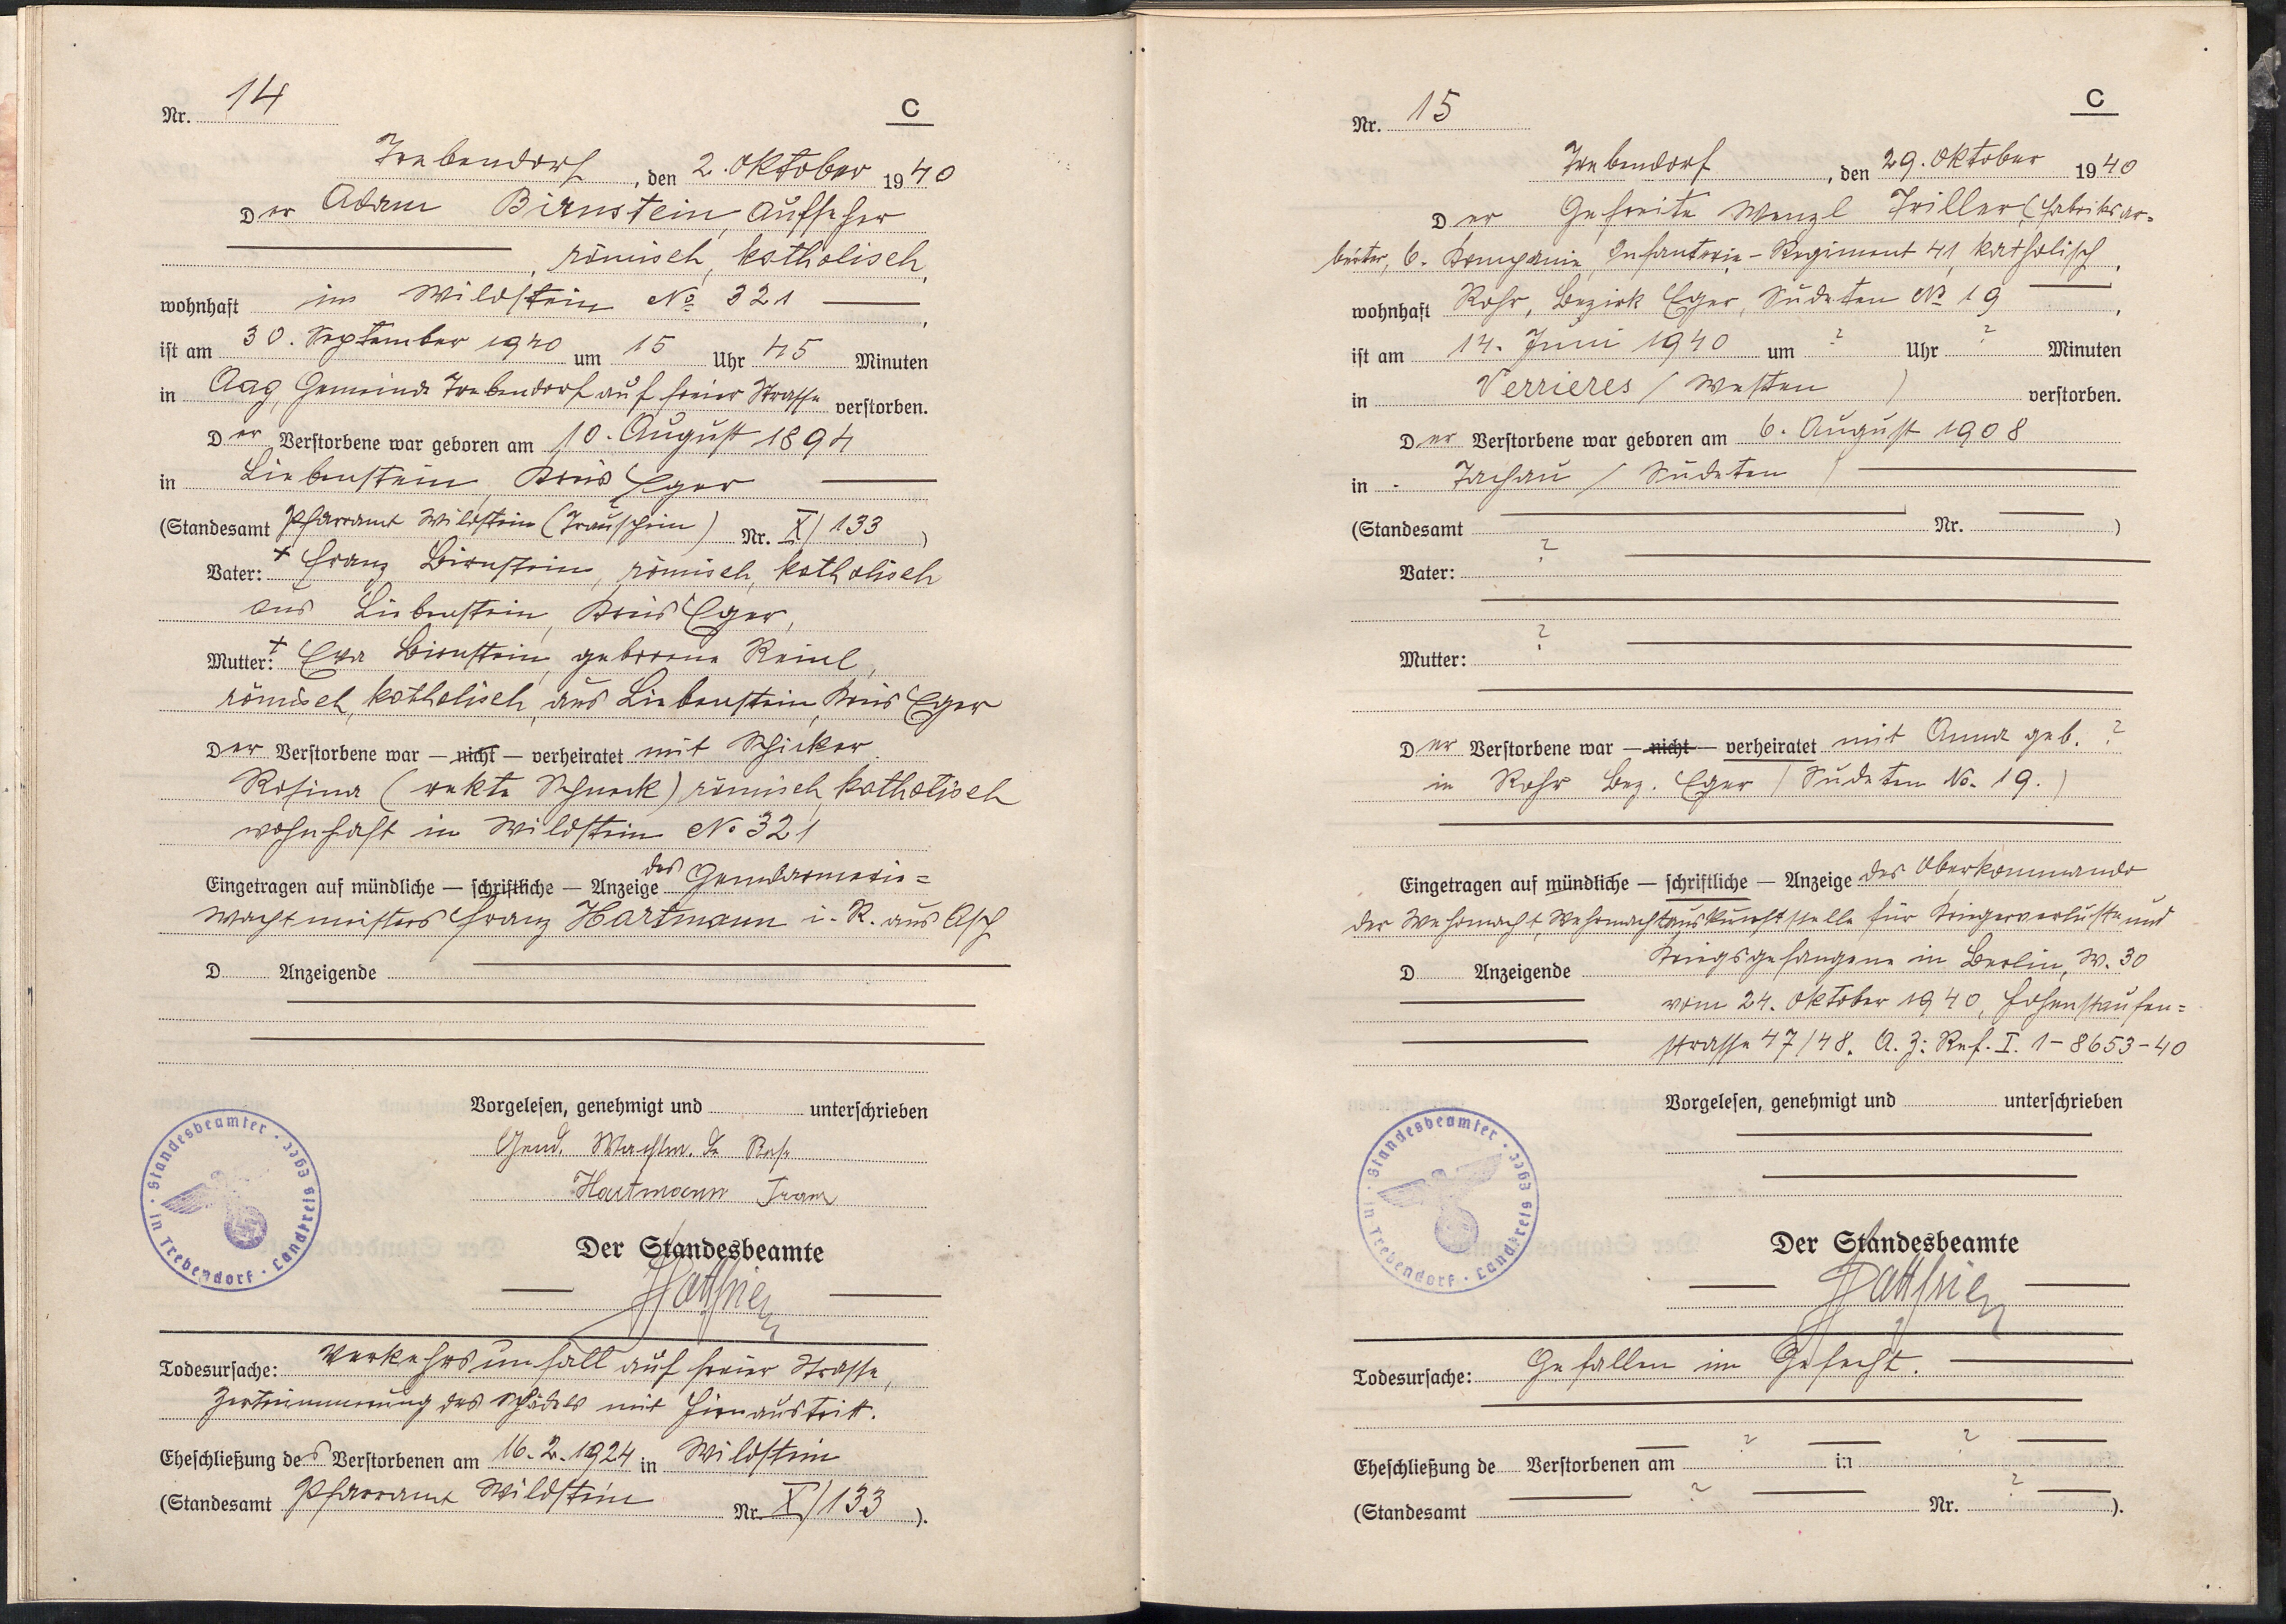 Nr. 14
C
Trebendorf, den 2. Oktober 1940
Der Adam Birnstein, Aufseher
, römisch, katholisch,
wohnhaft in Wildstein No 321,
ist am 30. September 1940 um 15 Uhr 45 Minuten
in Aag, Gemeinde Trebendorf auf freier Strasse verstorben.
Der Verstorbene war geboren am 10. August 1894
in Liebenstein, Kreis Eger
(Standesamt Pfarramt Wildstein (Trauschein) Nr. X/133)
Vater: + Franz Birnstein, römisch, katholisch
aus Liebenstein, Kreis Eger,
Mutter: + Eva Birnstein, geborene Reinl,
römisch, katholisch, aus Liebenstein, Kreis Eger
Der Verstorbene war — nicht — verheiratet mit Schicker
Rosina (rekte Schneck) römisch, katholisch
wohnhaft in Wildstein No 321
Eingetragen auf mündliche — schriftliche — Anzeige des Gendarmerie=
wachtmeisters Franz Hartmann i. R. aus Asch
D Anzeigende
Vorgelesen, genehmigt und unterschrieben
Gend. Wachtm. d.
Hartmann Franz
Der Standesbeamte
Standesbeamter in Trebendorf · Landkreis Eger
Todesursache: Verkehrsunfall auf freier Strasse,
Zertrümmerung des Schädels mit Hirnaustritt.
Eheschließung des Verstorbenen am 16.2.1924 in Wildstein
(Standesamt Pfarramt Wildstein Nr. X/133).
Nr. 15
C
Trebendorf, den 29. Oktober 1940
Der Gefreite Wenzl Triller (Fabriksar=
beiter, 6. Kompanie, Infanterie-Regiment 41, katholisch,
wohnhaft Rohr, Bezirk Eger, Sudeten No 19,
ist am 14. Juni 1940 um ? Uhr ? Minuten
in Verrieres (Westen) verstorben.
Der Verstorbene war geboren am 6. August 1908
in Tachau (Sudeten)
(Standesamt Nr. )
Vater: ?
Mutter: ?
Der Verstorbene war — nicht — verheiratet mit Anna geb. ?
in Rohr Bez. Eger (Sudeten No. 19.)
Eingetragen auf mündliche — schriftliche — Anzeige des Oberkommando
der Wehrmacht, Wehrmachtauskunftstelle für Kriegerverluste und
D Anzeigende Kriegsgefangene in Berlin, W. 30
vom 24. Oktober 1940, Hohenstaufen=
strasse 47/48. A. Z: Ref. I. 1-8653-40
Vorgelesen, genehmigt und unterschrieben
Der Standesbeamte
Standesbeamter in Trebendorf · Landkreis Eger
Todesursache: Gefallen im Gefecht.
Eheschließung de Verstorbenen am ? in ?
(Standesamt ? Nr. ? ).